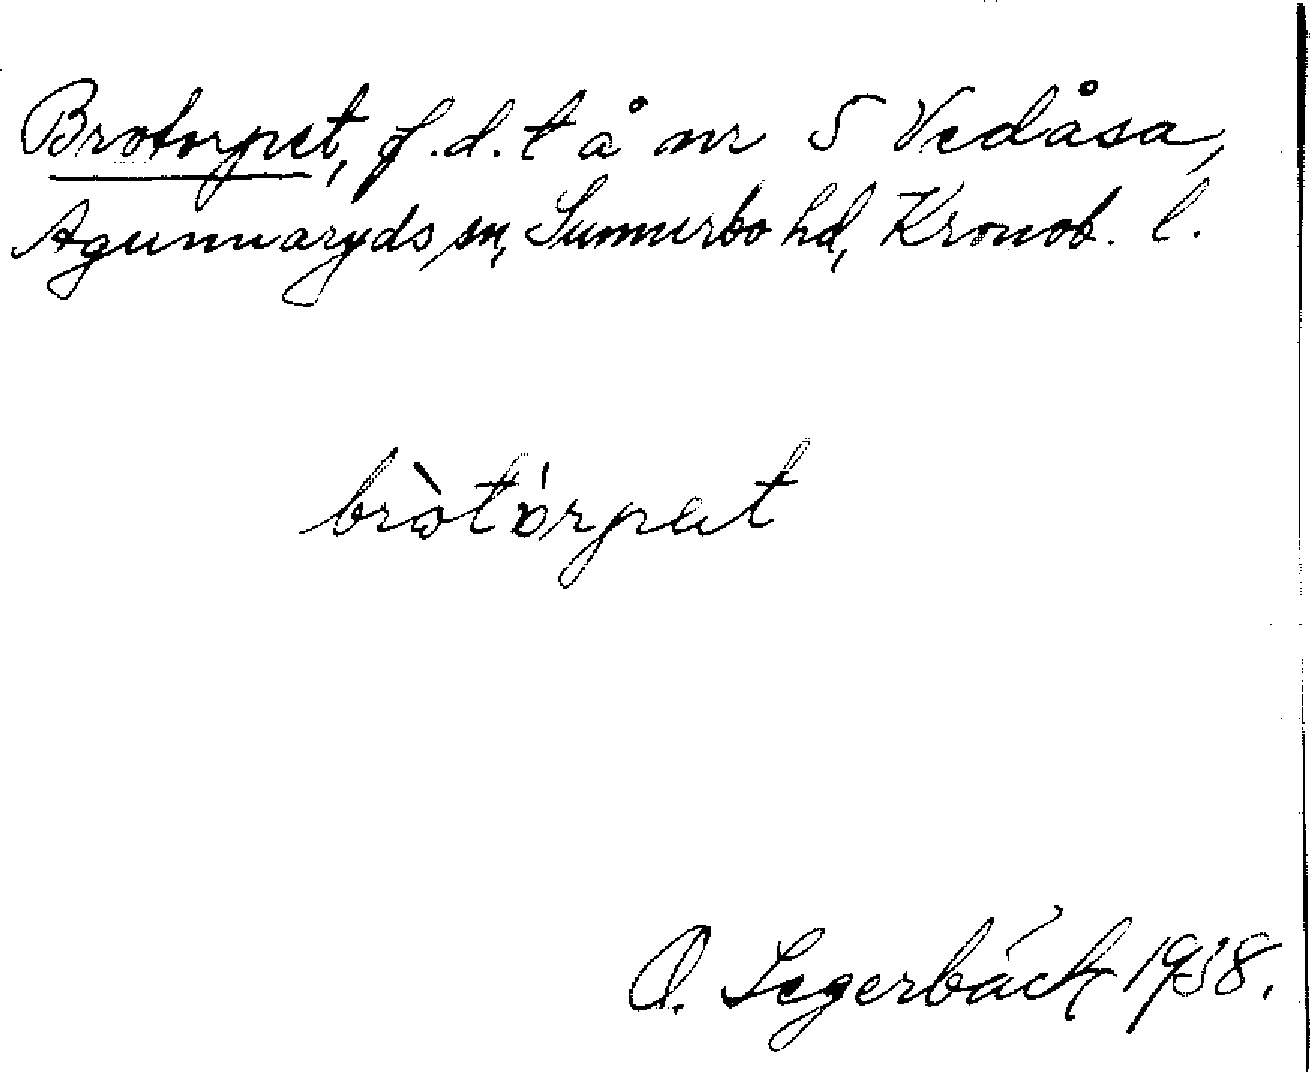 Brotorpet, f.d. t å nr 5 Vedåsa,
Agunnaryds sn, Sunnerbo hd, Kronob. l.
bròtórpet
O. Segerbäck 1938.